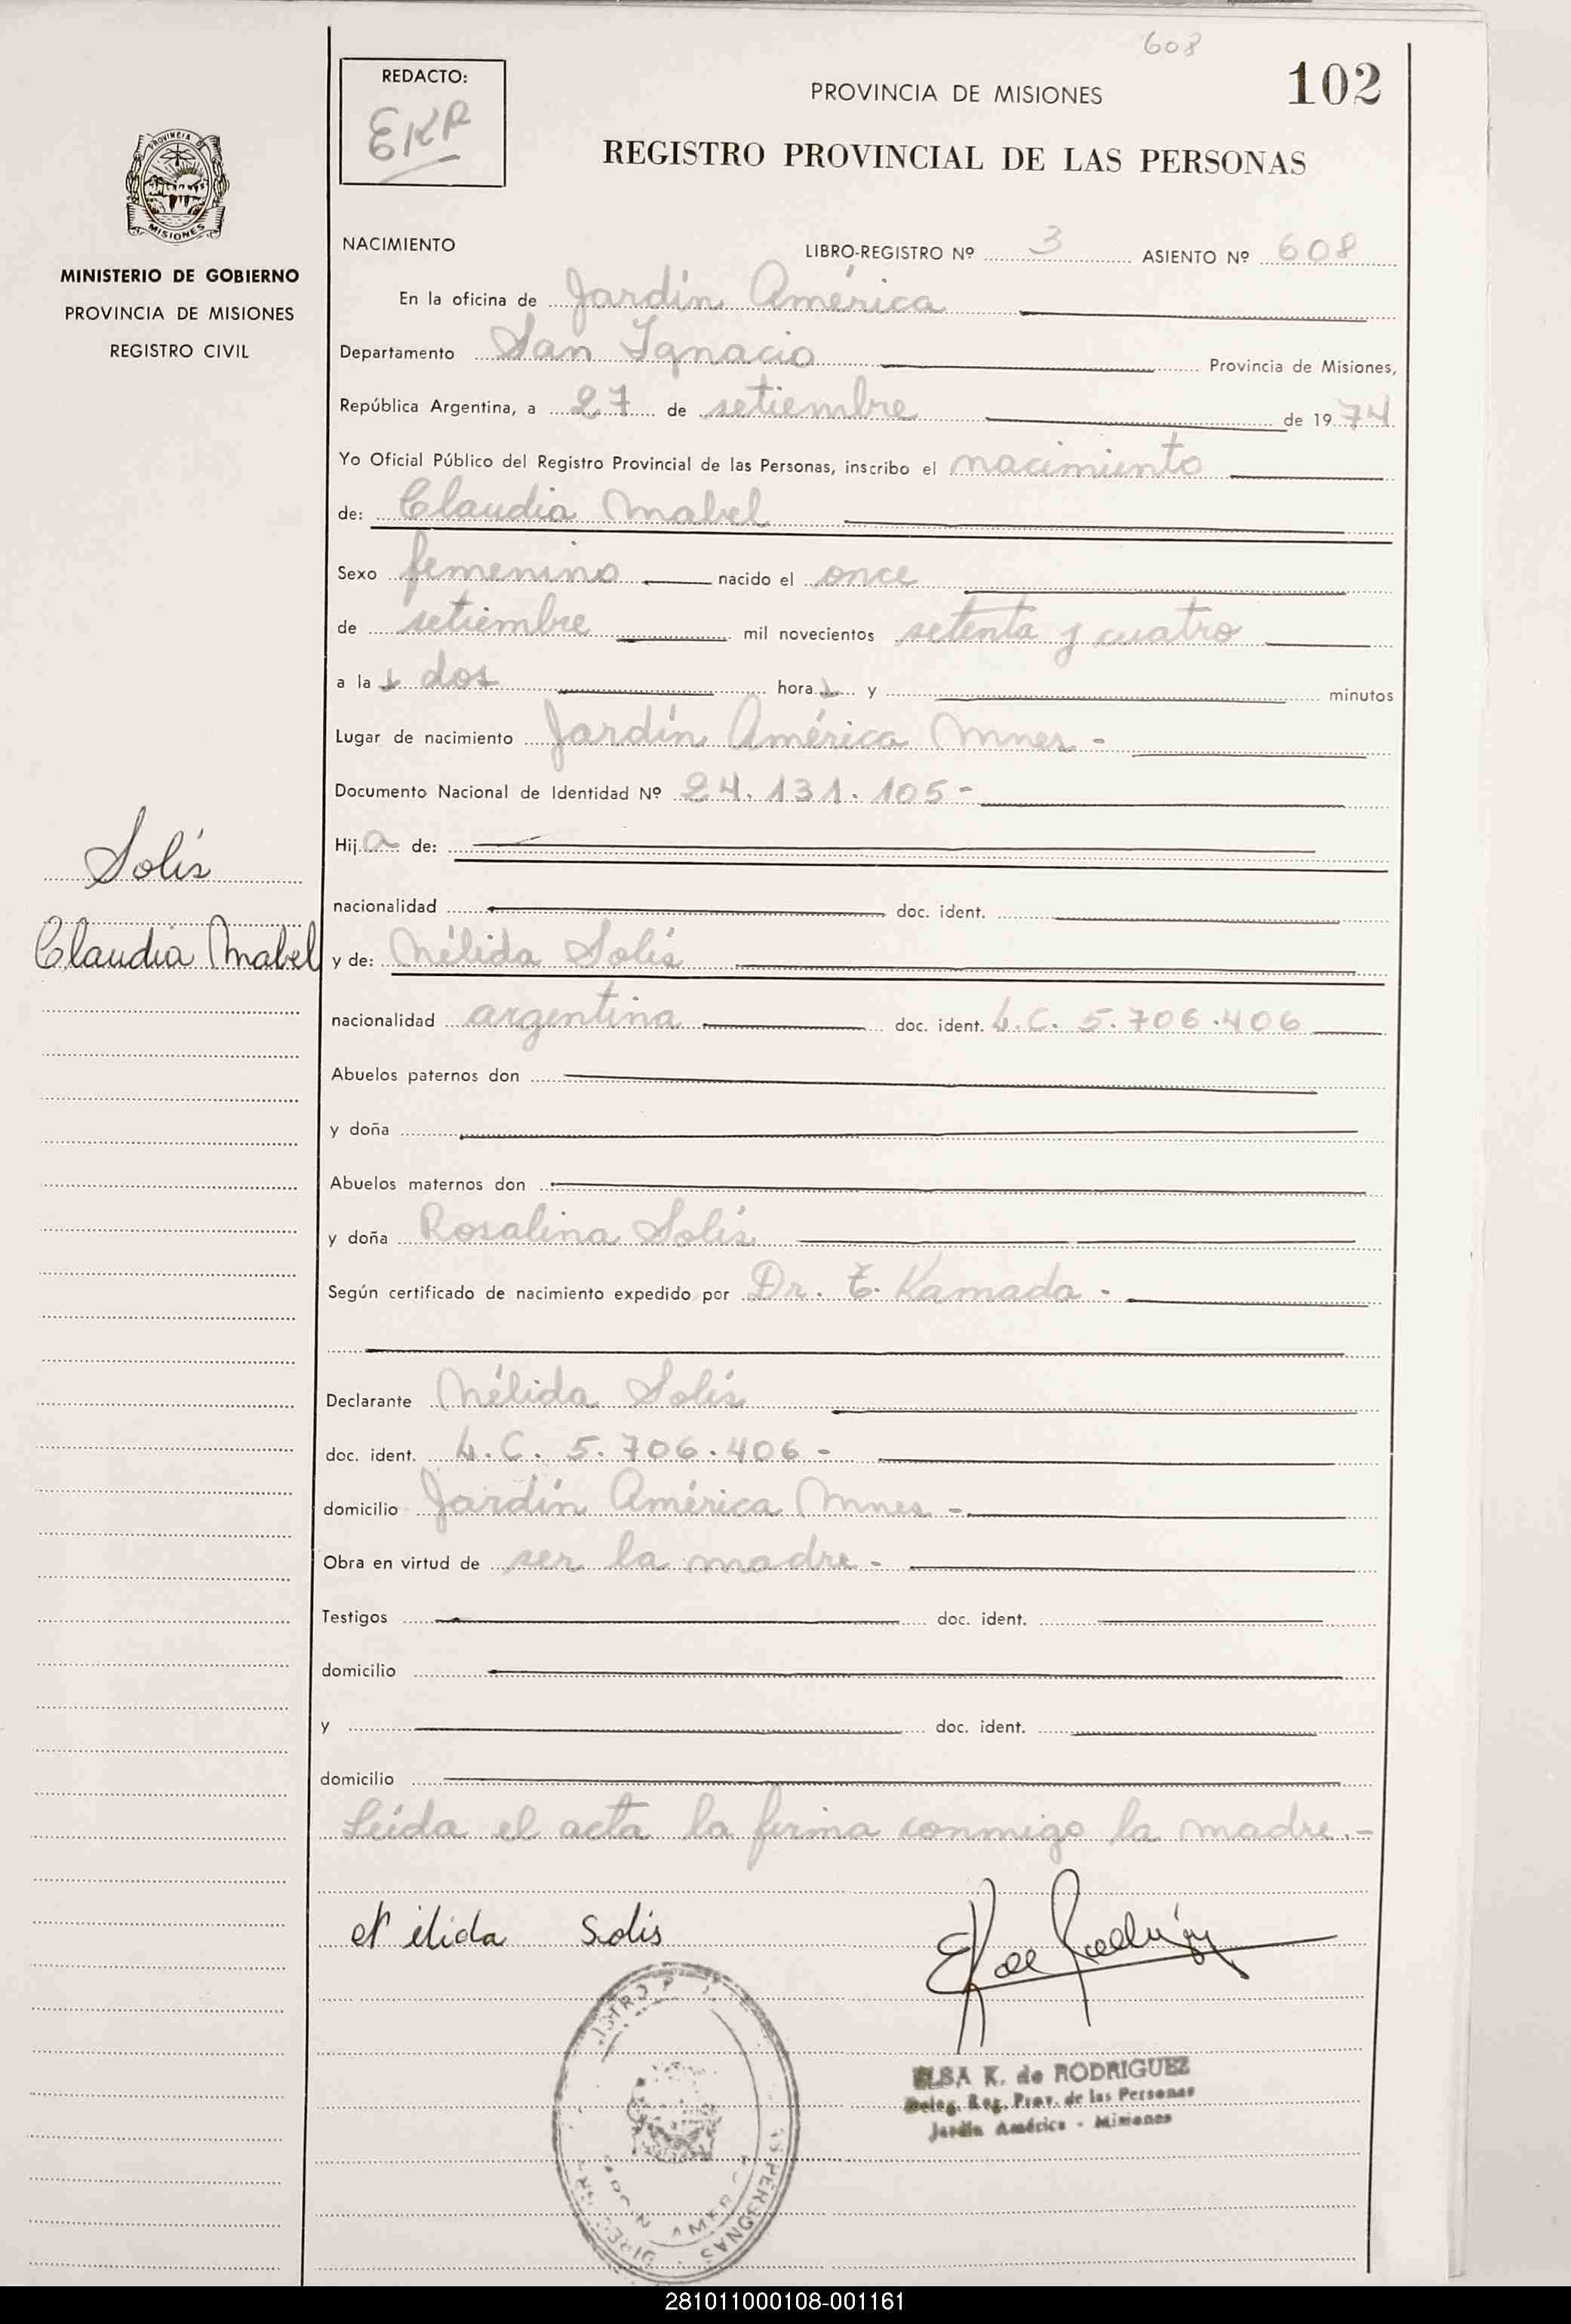 608
102
REDACTO:
EKR
PROVINCIA DE MISIONES
REGISTRO PROVINCIAL DE LAS PERSONAS
PROVINCIA DE
MISIONES
MINISTERIO DE GOBIERNO
PROVINCIA DE MISIONES
REGISTRO CIVIL
NACIMIENTO LIBRO-REGISTRO Nº 3 ASIENTO Nº 608
En la oficina de Jardín América
Departamento San Ignacio Provincia de Misiones,
República Argentina, a 27 de setiembre de 1974
Yo Oficial Público del Registro Provincial de las Personas, inscribo el nacimiento
de: Claudia Mabel
Sexo femenino nacido el once
de setiembre mil novecientos setenta y cuatro
a la s dos hora s y minutos
Lugar de nacimiento Jardín América Mnes -
Documento Nacional de Identidad Nº 24.131.105-
Hija de:
nacionalidad doc. ident.
Solís
Claudia Mabel
y de: Nélida Solís
nacionalidad argentina doc. ident. L.C. 5.706.406
Abuelos paternos don
y doña
Abuelos maternos don
y doña Rosalina Solís
Según certificado de nacimiento expedido por Dr. T. Kamada -
Declarante Nélida Solís
doc. ident. L.C. 5.706.406-
domicilio Jardín América Mnes -
Obra en virtud de ser la madre -
Testigos doc. ident.
domicilio
y doc. ident.
domicilio
Leída el acta la firma conmigo la madre.-
Nélida Solis
EK de Rodríguez
ELSA K. de RODRIGUEZ
Deleg. Reg. Prov. de las Personas
Jardín América - Misiones
281011000108-001161